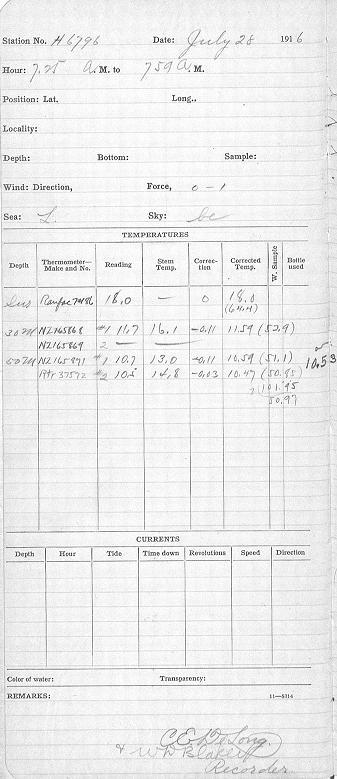 Station No. H 6796 Date: July 28 1916
Hour: 7.25 A. M. to 7 59 A. M.
Position: Lat. Long..
Locality:
Depth: Bottom: Sample:
Wind: Direction, Force, 0 - 1
Sea: L. Sky: bc
TEMPERATURES
Depth Thermometer— Make and No. Reading Stem Temp. Correc- tion Corrected Temp. W. Sample Bottle used
18.0 — 0 18.0
(64.4)
30 M NZ165868 #1 11.7 16.1 -0.11 11.59 (52.9)
NZ165869 2 — —
50 M NZ165871 #1 10.7 13.0 -0.11 10.59 (51.1) or 10.53
37572 #2 10.5 14.8 -0.03 10.47 (50.85)
2 101.95
50.97
CURRENTS
Depth Hour Tide Time down Revolutions Speed Direction
Color of water: Transparency:
REMARKS: 11—5314
C E De Long.
& W D Blakely
Recorder